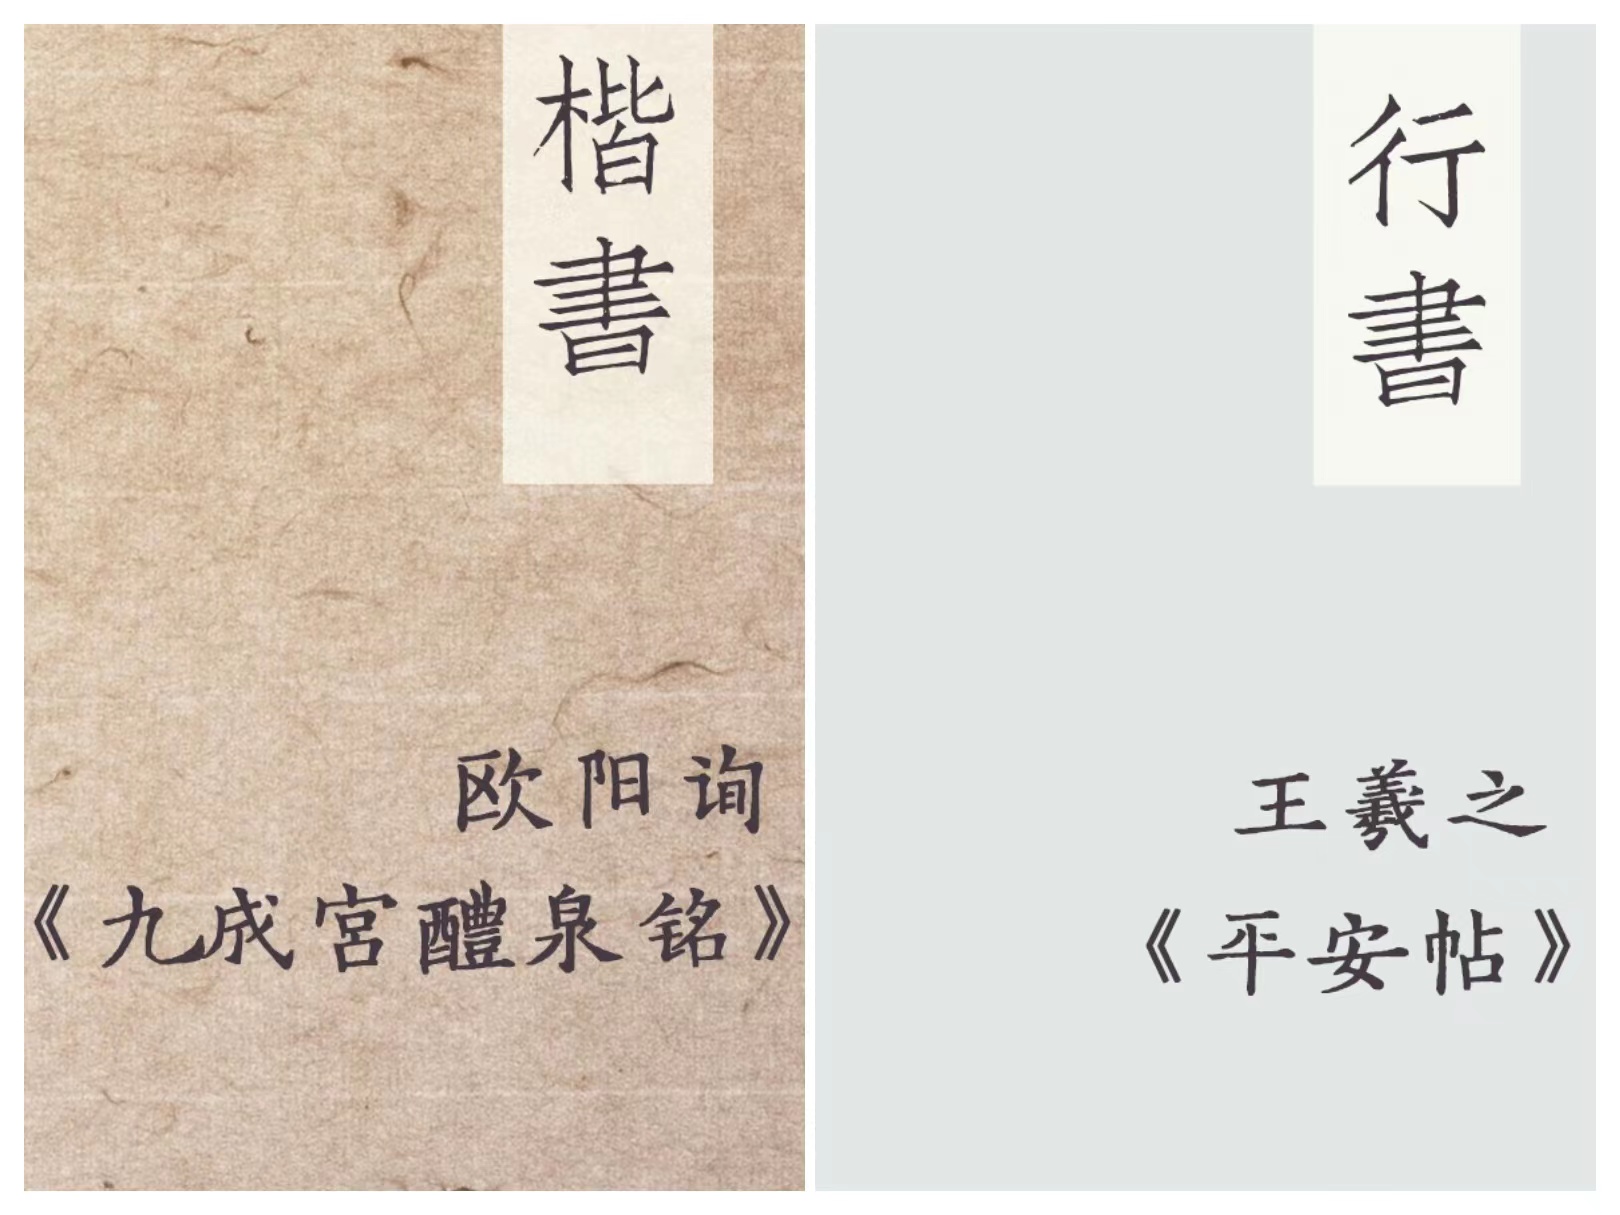 楷書
欧阳询
《九成宫醴泉铭》
行書
王羲之
《平安帖》